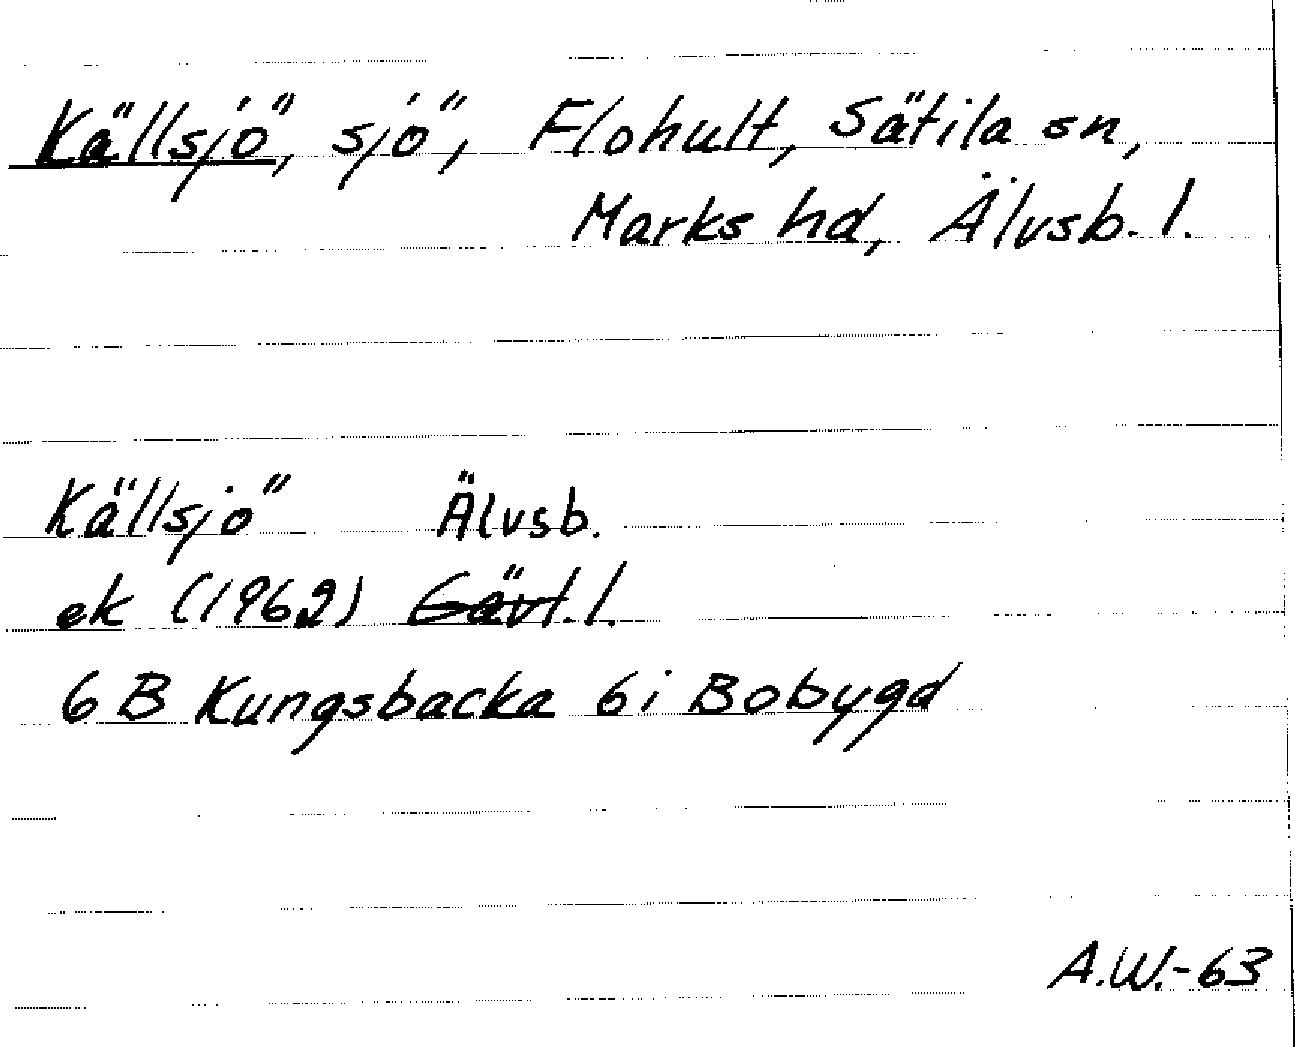 Källsjö, sjö, Flohult, Sätila sn,
Marks hd, Älvsb. l.
Källsjö Älvsb.
ek (1962) Gävl. l.
6 B Kungsbacka 6 i Bobygd
A.W.-63